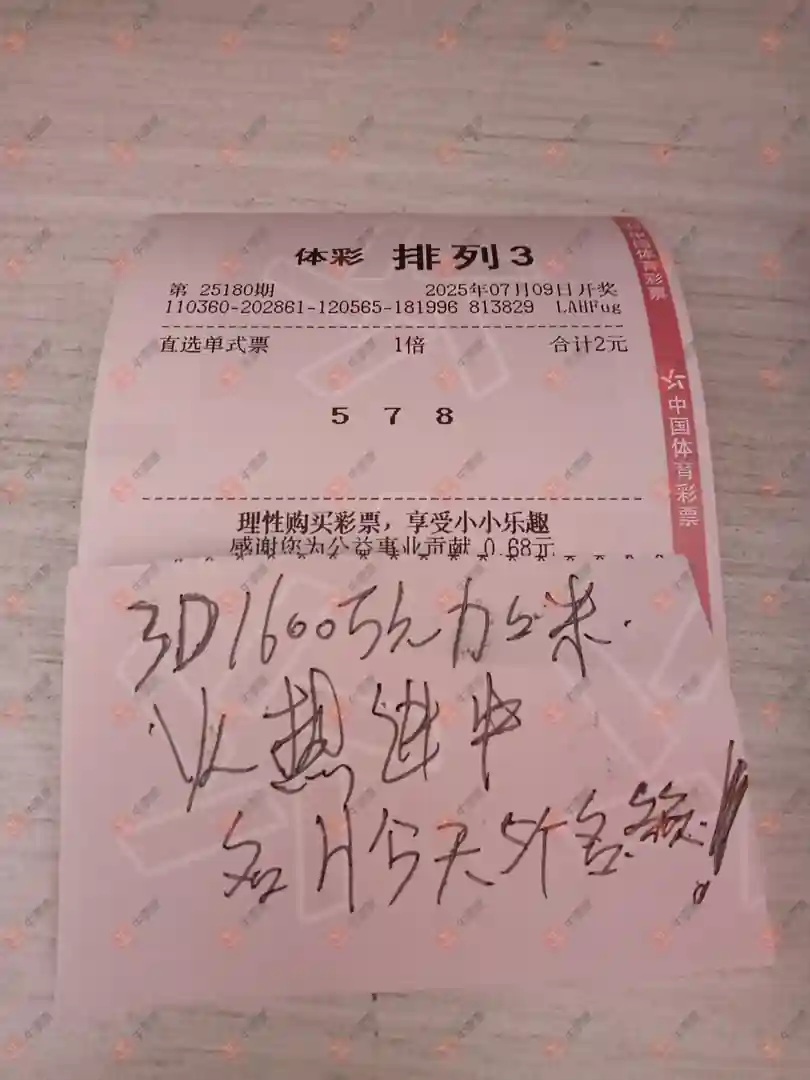 体彩 排列3
第 25180期 2025年07月09日开奖
110360-202861-120565-181996 813829 LAHFug
直选单式票 1倍 合计2元
5 7 8
理性购买彩票，享受小小乐趣
感谢您为公益事业贡献 0.68元
中国体育彩票
中国体育彩票
3D1600万元加上米.
火热进中
名片今天5个名额!